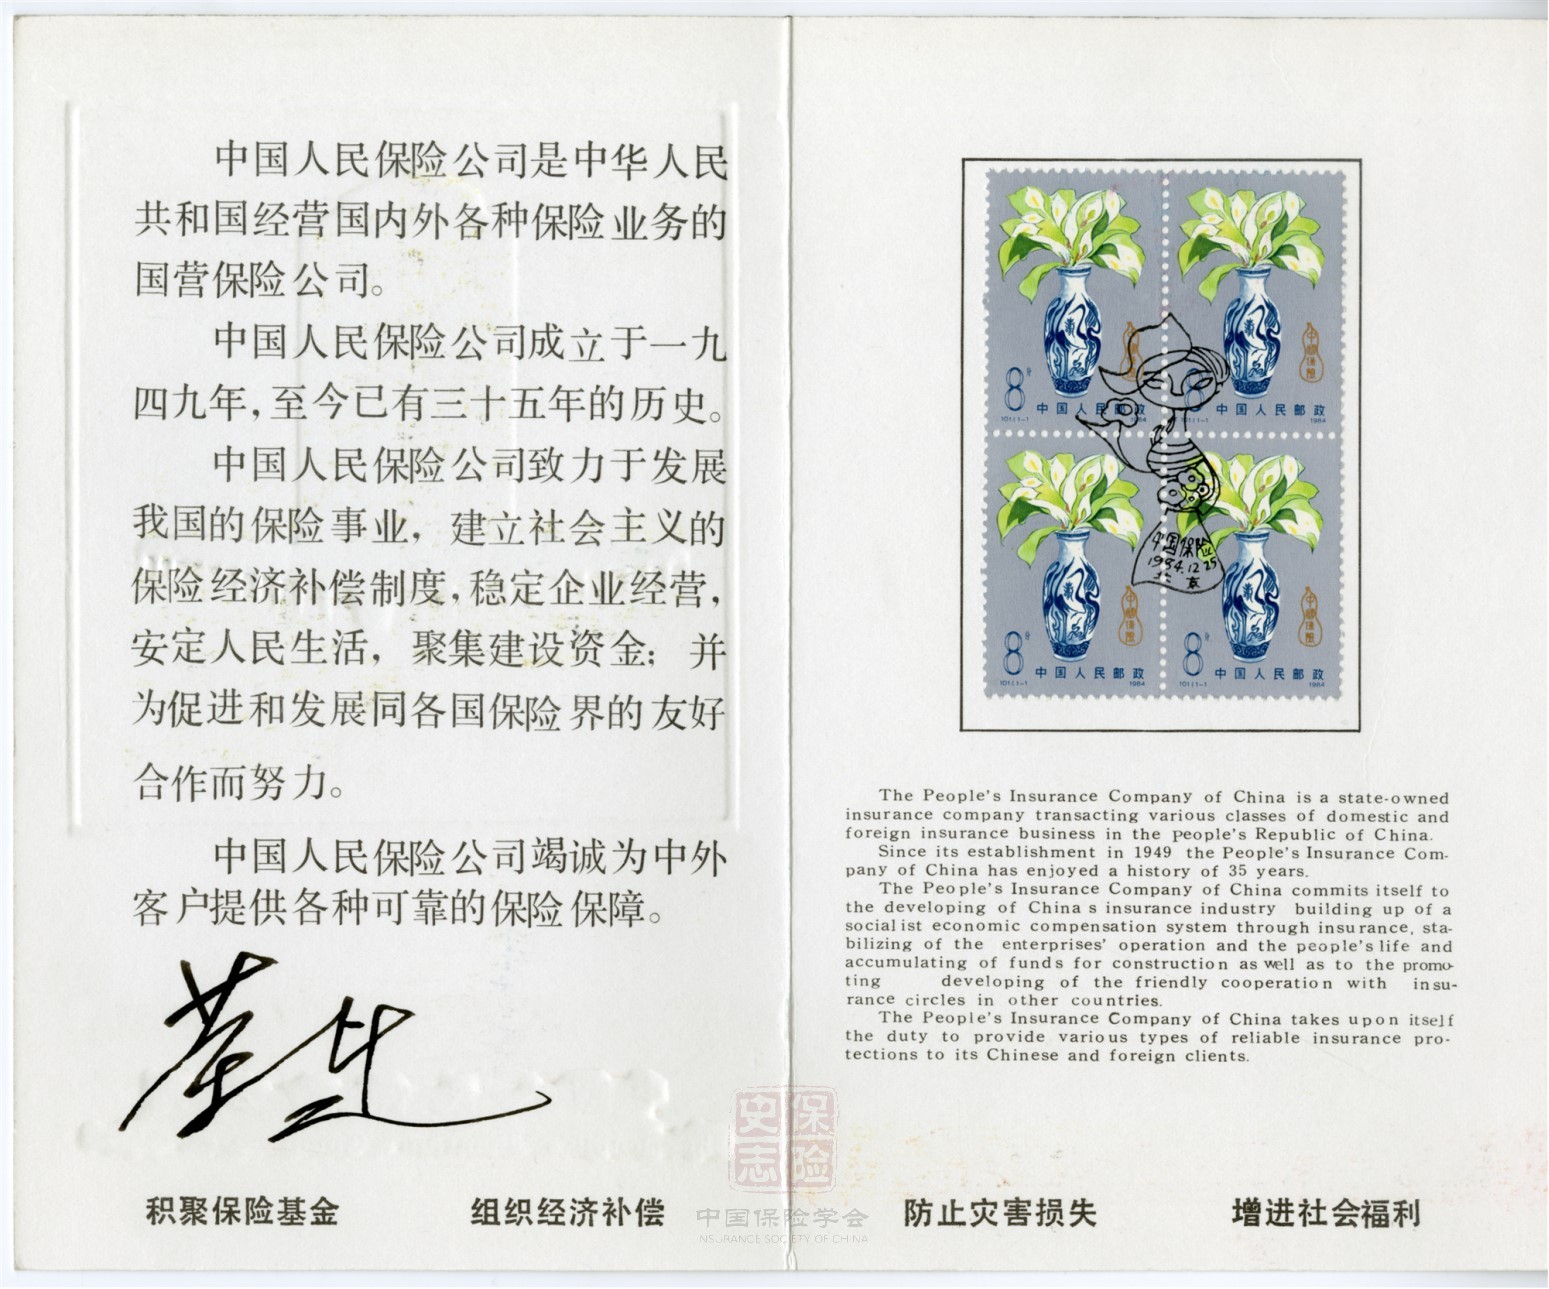 中国人民保险公司是中华人民
共和国经营国内外各种保险业务的
国营保险公司。
中国人民保险公司成立于一九
四九年，至今已有三十五年的历史。
中国人民保险公司致力于发展
我国的保险事业，建立社会主义的
保险经济补偿制度，稳定企业经营，
安定人民生活，聚集建设资金；并
为促进和发展同各国保险界的友好
合作而努力。
中国人民保险公司竭诚为中外
客户提供各种可靠的保险保障。
积聚保险基金
组织经济补偿
中国保险
8分
中国人民邮政
T101.(1-1)
1984
中国保险
8分
中国人民邮政
T101.(1-1)
1984
中国保险
1984.12.25
北京
中国保险
8分
中国人民邮政
T101.(1-1)
1984
中国保险
8分
中国人民邮政
T101.(1-1)
1984
The People's Insurance Company of China is a state-owned
insurance company transacting various classes of domestic and
foreign insurance business in the people's Republic of China.
Since its establishment in 1949 the People's Insurance Com-
pany of China has enjoyed a history of 35 years.
The People's Insurance Company of China commits itself to
the developing of China s insurance industry building up of a
socialist economic compensation system through insurance, sta-
bilizing of the enterprises' operation and the people's life and
accumulating of funds for construction as well as to the promo-
ting developing of the friendly cooperation with insu-
rance circles in other countries.
The People's Insurance Company of China takes upon itself
the duty to provide various types of reliable insurance pro-
tections to its Chinese and foreign clients.
防止灾害损失
增进社会福利
保险史志
中国保险学会
INSURANCE SOCIETY OF CHINA